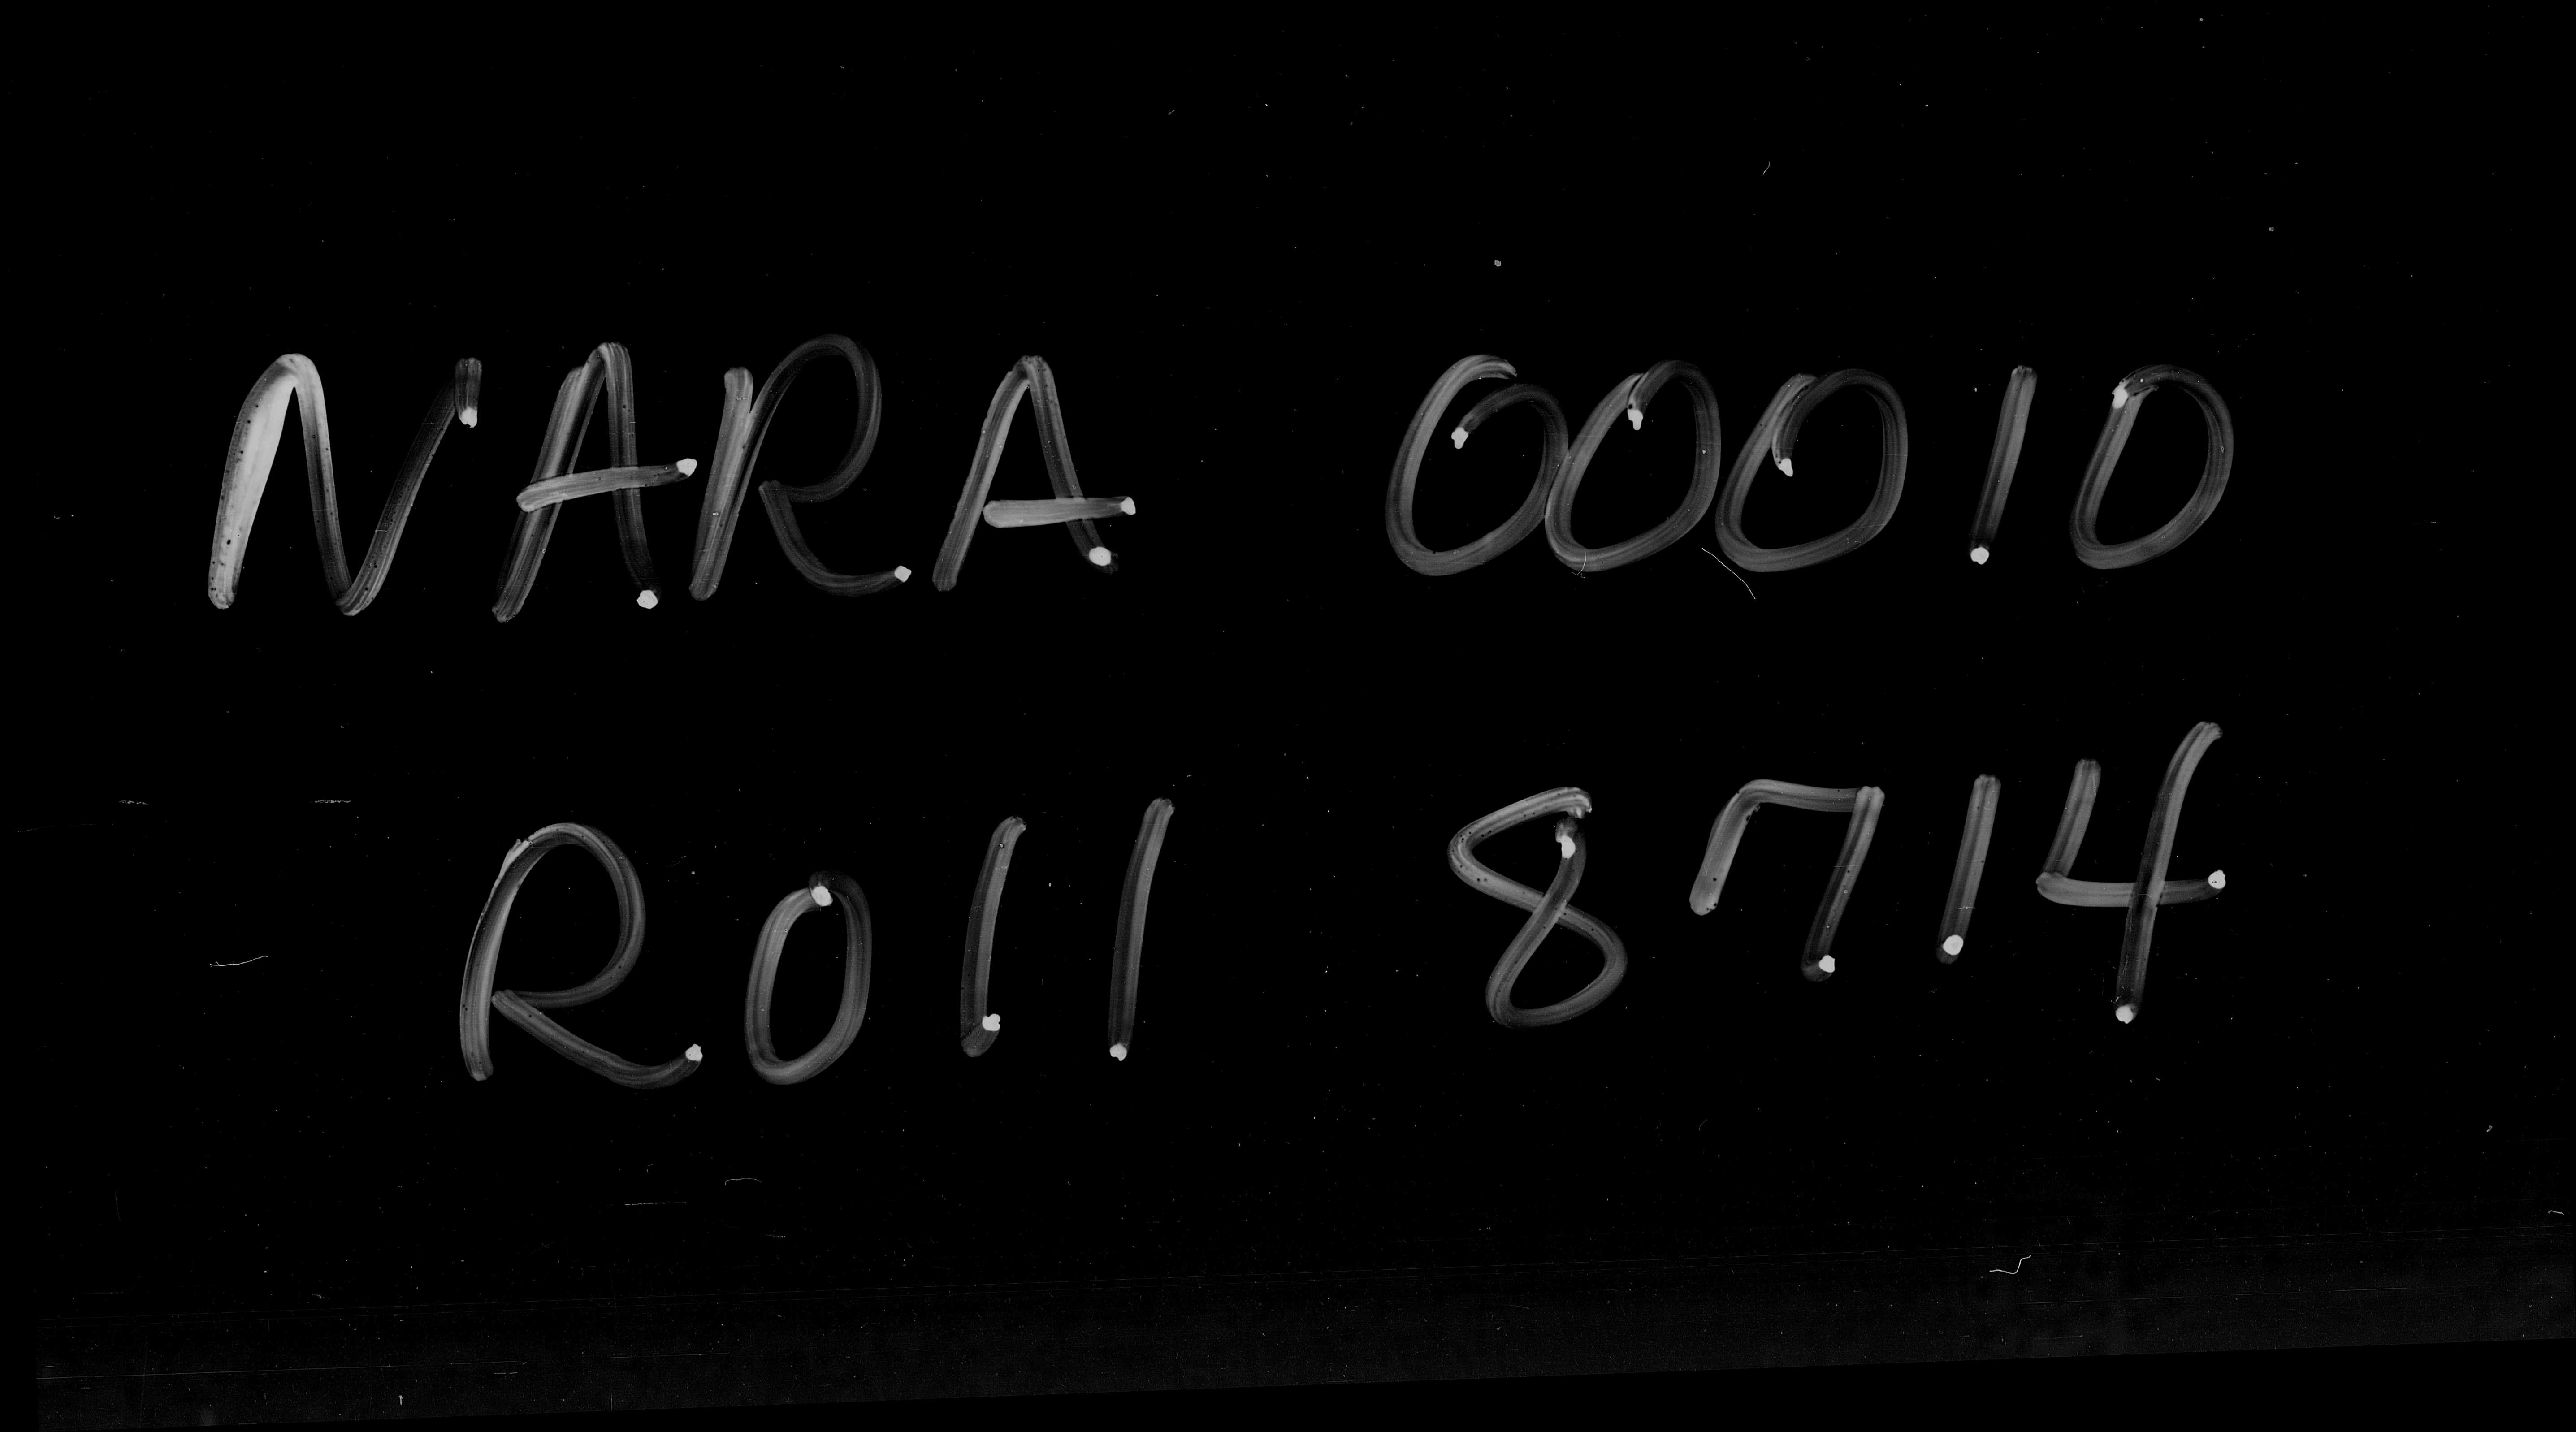 NARA 00010
Roll 8714